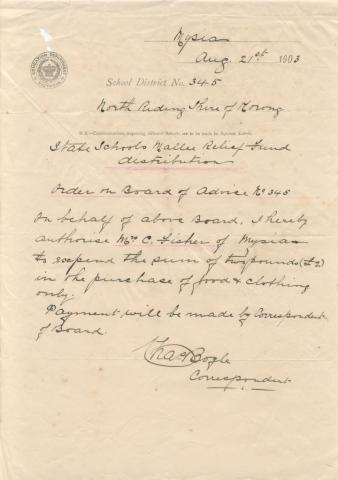 Mysia
Aug 21st 1903
EDUCATION DEPARTMENT
VICTORIA
School District No. 345
North Riding Shire of Korong
N.B.—Communications respecting different Schools are to be made in Separate Letters.
State Schools Mallee Relief Fund
distribution
Order on Board of Advice No 345
On behalf of above Board, I hereby
authorise Mr C. Fisher of Mysia
to expend the sum of two pounds (£2)
in the purchase of food & clothing
only.
Payment will be made by Correspondent
of Board.
Chas Bogle
Correspondent